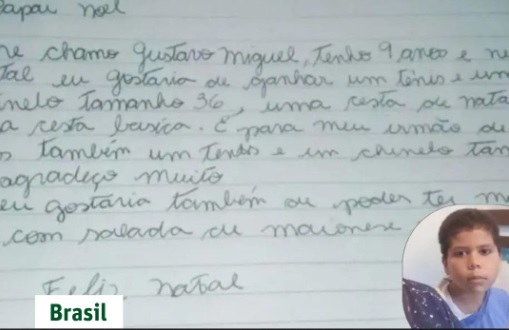 Papai Noel
me chamo Gustavo Miguel, Tenho 9 anos e ne
Tal eu gostaria de ganhar um tênis e um
inelo Tamanho 36, uma cesta de nata
a cesta basica. E para meu irmão de
Também um Tenis e um chinelo Tam
agradeço muito
eu gostaria também de poder ter
com salada de maionese
Feliz natal
Brasil